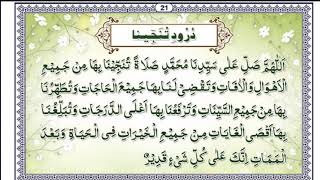 21
دُرُودِ تُنَجِّينَا
اَللّٰهُمَّ صَلِّ عَلٰى سَيِّدِنَا مُحَمَّدٍ صَلَاةً تُنَجِّيْنَا بِهَا مِنْ جَمِيْعِ
الْاَهْوَالِ وَالْاٰفَاتِ وَتَقْضِيْ لَنَا بِهَا جَمِيْعَ الْحَاجَاتِ وَتُطَهِّرُنَا
بِهَا مِنْ جَمِيْعِ السَّيِّئَاتِ وَتَرْفَعُنَا بِهَا اَعْلَى الدَّرَجَاتِ وَتُبَلِّغُنَا
بِهَا اَقْصَى الْغَايَاتِ مِنْ جَمِيْعِ الْخَيْرَاتِ فِى الْحَيَاةِ وَبَعْدَ
الْمَمَاتِ اِنَّكَ عَلٰى كُلِّ شَيْءٍ قَدِيْرٌ